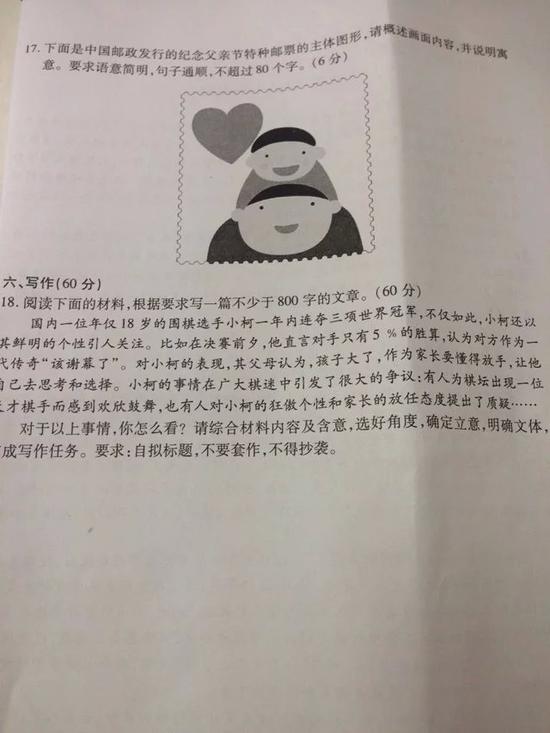 17. 下面是中国邮政发行的纪念父亲节特种邮票的主体图形，请概述画面内容，并说明寓
意。要求语意简明，句子通顺，不超过80个字。(6分)
六、写作(60分)
18. 阅读下面的材料，根据要求写一篇不少于800字的文章。(60分)
国内一位年仅18岁的围棋选手小柯一年内连夺三项世界冠军，不仅如此，小柯还以
其鲜明的个性引人关注。比如在决赛前夕，他直言对手只有5%的胜算，认为对方作为一
代传奇“该谢幕了”。对小柯的表现，其父母认为，孩子大了，作为家长要懂得放手，让他
自己去思考和选择。小柯的事情在广大棋迷中引发了很大的争议：有人为棋坛出现一位
天才棋手而感到欢欣鼓舞，也有人对小柯的狂傲个性和家长的放任态度提出了质疑……
对于以上事情，你怎么看？请综合材料内容及含意，选好角度，确定立意，明确文体，
成写作任务。要求：自拟标题，不要套作，不得抄袭。